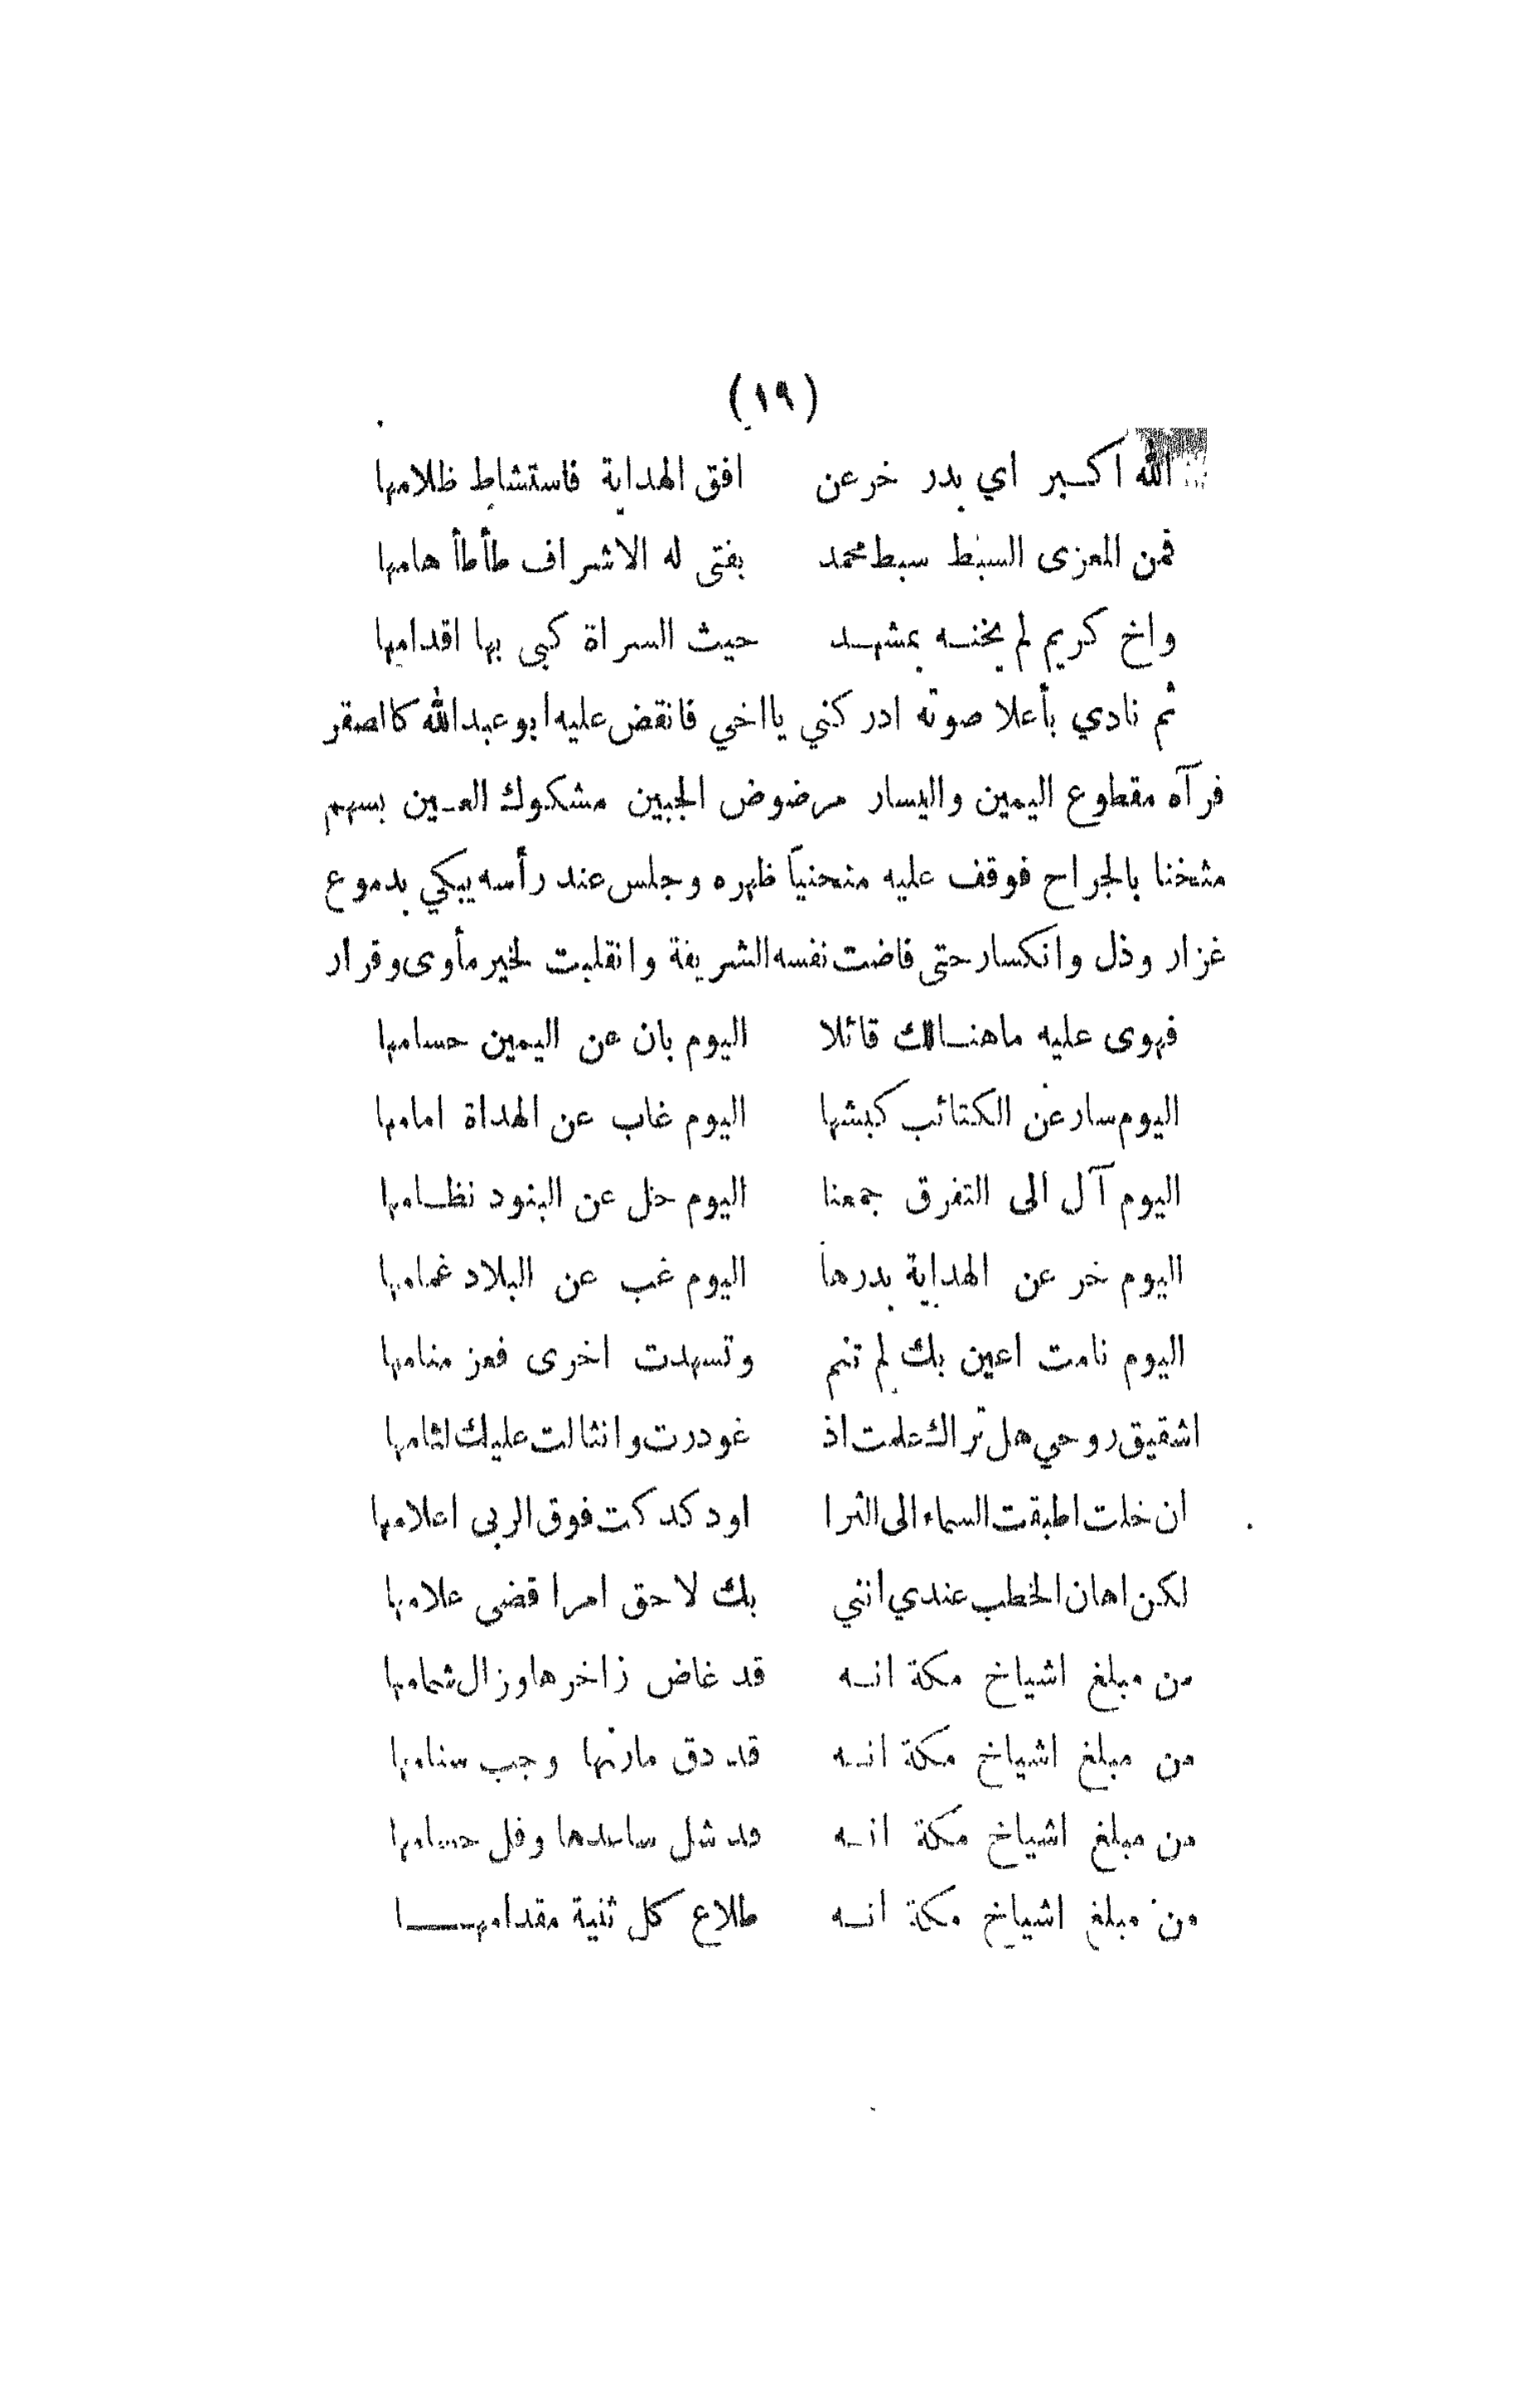 (١٩)
الله اكـبر اي بدر خر عن افق الهداية فاستشاط ظلامها
فمن المعزى السبط سبط محمد بفتى له الاشراف طأطأ هامها
واخ كريم لم يخنـه بمشهـد حيث السراة كبى بها اقدامها
ثم نادي بأعلا صوته ادركني يااخي فانقض عليه ابو عبدالله كالصقر
فرآه مقطوع اليمين واليسار مرضوض الجبين مشكوك العـين بسهم
مثخنا بالجراح فوقف عليه منحنياً ظهره وجلس عند رأسه يبكي بدموع
غزار وذل وانكسار حتى فاضت نفسه الشريفة وانقلبت لخير مأوى وقرار
فهوى عليه ماهنـالك قائلا اليوم بان عن اليمين حسامها
اليوم سار عن الكتائب كبشها اليوم غاب عن الهداة امامها
اليوم آل الى التفرق جمعنا اليوم حل عن البنود نظـامها
اليوم خر عن الهداية بدرها اليوم غب عن البلاد غمامها
اليوم نامت اعين بك لم تنم وتسهدت اخرى فعز منامها
اشقيق روحي هل تراك علمت اذ غودرت وانثالت عليك لثامها
ان خلت اطبقت السماء الى الثرا اودكدكت فوق الربى اعلامها
لكن اهان الخطب عندي انني بك لاحق امرا قضى علامها
من مبلغ اشياخ مكة انـه قد غاض زاخرها وزال شمامها
من مبلغ اشياخ مكة انـه قد دق مارنها وجب سنامها
من مبلغ اشياخ مكة انـه قد شل ساعدها وفل حسامها
من مبلغ اشياخ مكة انـه طلاع كل ثنية مقدامهـــا